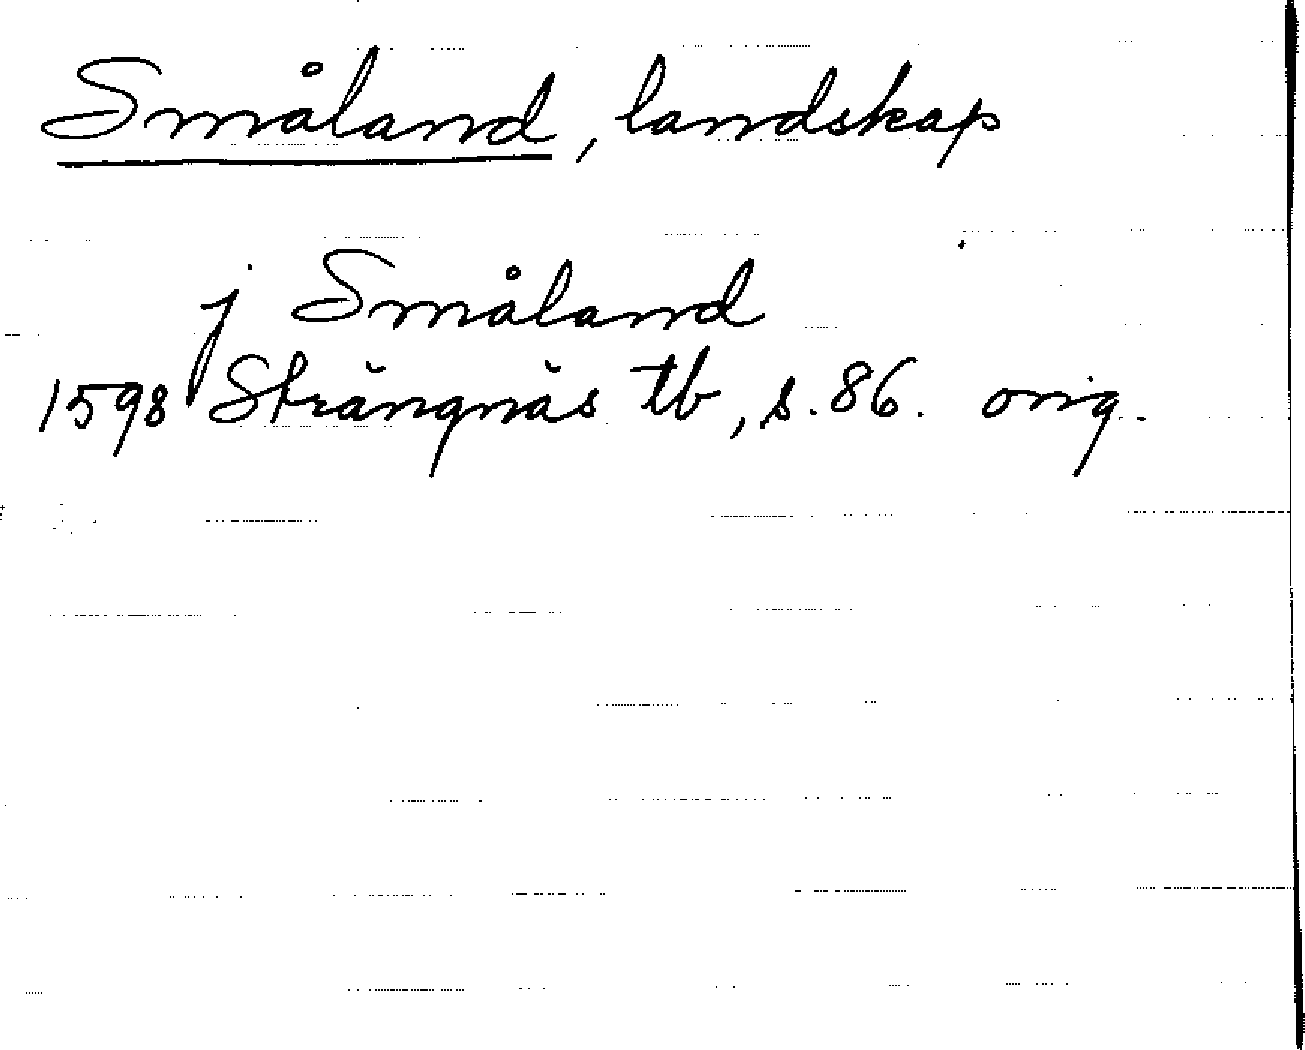 Småland, landskap
j Småland
1598 Strängnäs tb, s. 86. orig.